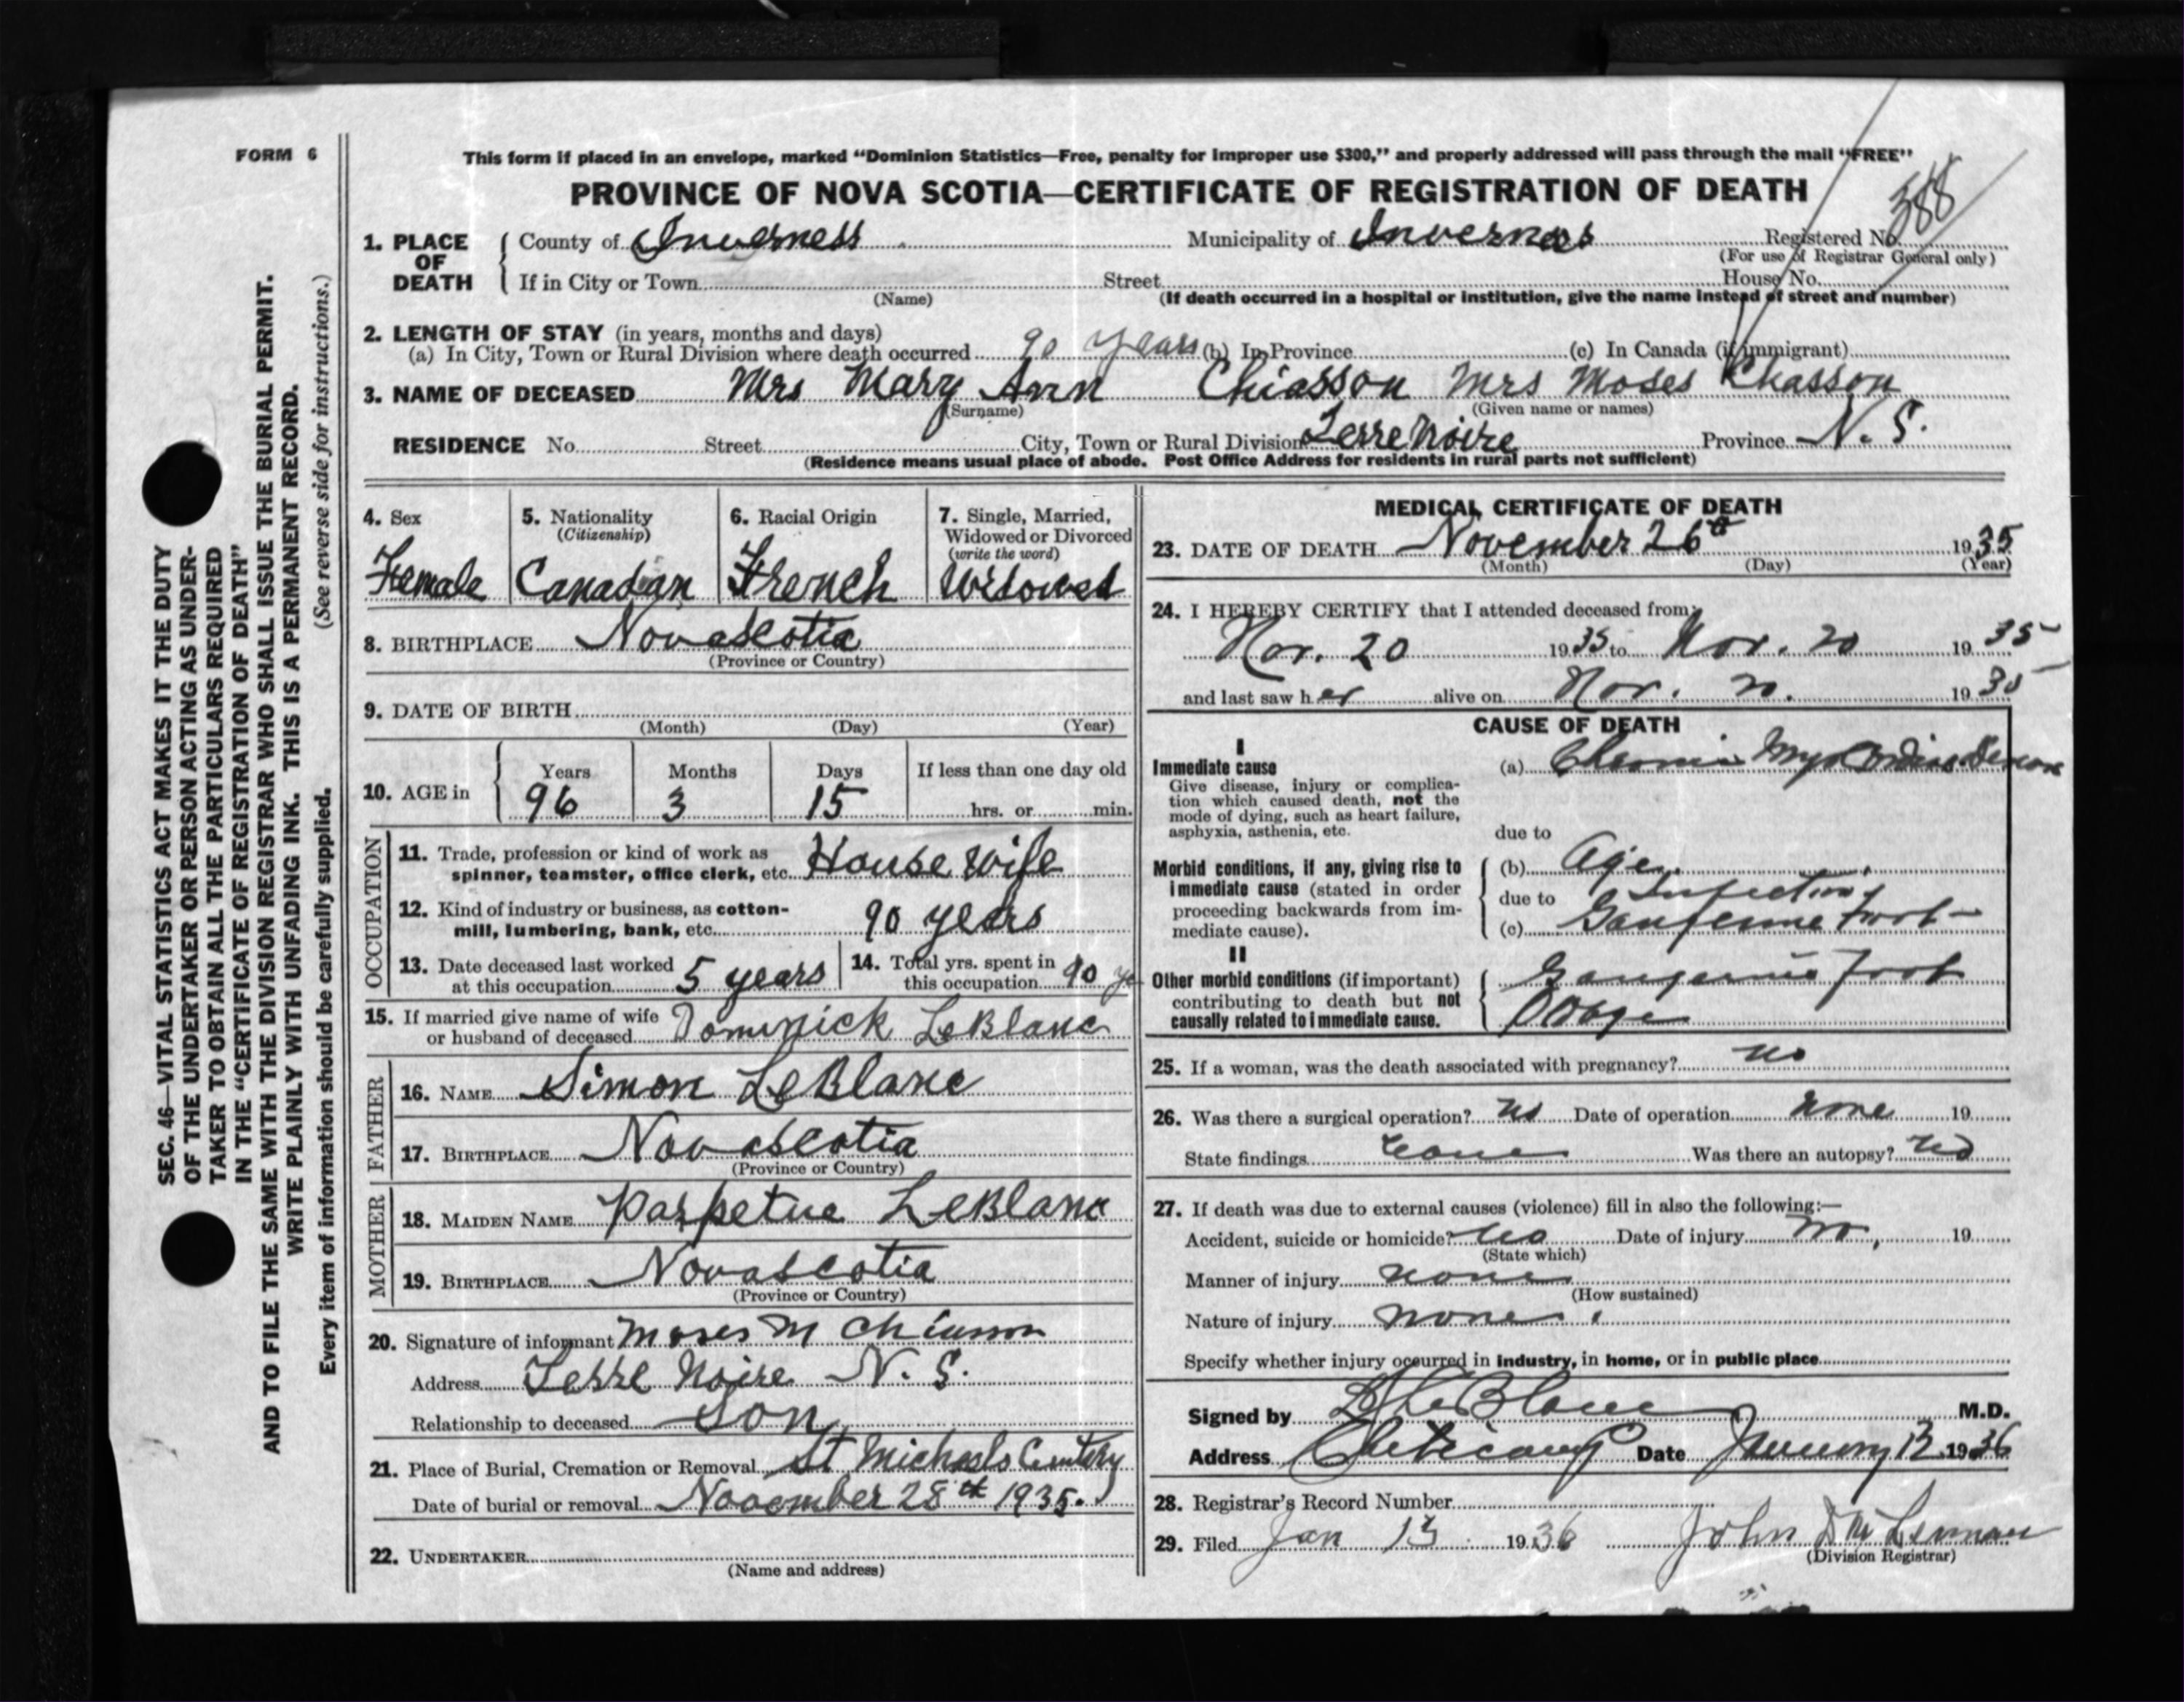 FORM 6
This form if placed in an envelope, marked "Dominion Statistics—Free, penalty for improper use $300," and properly addressed will pass through the mail "FREE"
PROVINCE OF NOVA SCOTIA—CERTIFICATE OF REGISTRATION OF DEATH
388
1. PLACE OF DEATH County of Inverness Municipality of Inverness Registered No.
(For use of Registrar General only)
If in City or Town Street House No.
(Name) (If death occurred in a hospital or institution, give the name instead of street and number)
2. LENGTH OF STAY (in years, months and days)
(a) In City, Town or Rural Division where death occurred 90 years (b) In Province (c) In Canada (if immigrant)
3. NAME OF DECEASED Mrs Mary Ann Chiasson Mrs Moses Chasson
(Surname) (Given name or names)
RESIDENCE No. Street City, Town or Rural Division Terre Noire Province N. S.
(Residence means usual place of abode. Post Office Address for residents in rural parts not sufficient)
SEC. 46—VITAL STATISTICS ACT MAKES IT THE DUTY
OF THE UNDERTAKER OR PERSON ACTING AS UNDER-
TAKER TO OBTAIN ALL THE PARTICULARS REQUIRED
IN THE "CERTIFICATE OF REGISTRATION OF DEATH"
AND TO FILE THE SAME WITH THE DIVISION REGISTRAR WHO SHALL ISSUE THE BURIAL PERMIT.
WRITE PLAINLY WITH UNFADING INK. THIS IS A PERMANENT RECORD.
Every item of information should be carefully supplied. (See reverse side for instructions.)
4. Sex 5. Nationality 6. Racial Origin 7. Single, Married,
(Citizenship) Widowed or Divorced
(write the word)
Female Canadian French Widowed
8. BIRTHPLACE Novascotia
(Province or Country)
9. DATE OF BIRTH
(Month) (Day) (Year)
10. AGE in Years Months Days If less than one day old
96 3 15 hrs. or min.
OCCUPATION
11. Trade, profession or kind of work as
spinner, teamster, office clerk, etc. House wife
12. Kind of industry or business, as cotton-
mill, lumbering, bank, etc. 90 years
13. Date deceased last worked 14. Total yrs. spent in
at this occupation 5 years this occupation 90 ye
15. If married give name of wife
or husband of deceased Dominick LeBlanc
FATHER
16. NAME Simon LeBlanc
17. BIRTHPLACE Novascotia
(Province or Country)
MOTHER
18. MAIDEN NAME Parpetue LeBlanc
19. BIRTHPLACE Novascotia
(Province or Country)
20. Signature of informant Moses M Chiasson
Address Terre Noire N. S.
Relationship to deceased Son
21. Place of Burial, Cremation or Removal St Michaels
Date of burial or removal November 28th 1935.
22. UNDERTAKER
(Name and address)
MEDICAL CERTIFICATE OF DEATH
23. DATE OF DEATH November 26th 1935
(Month) (Day) (Year)
24. I HEREBY CERTIFY that I attended deceased from
Nov. 20 1935 to Nov. 20 1935
and last saw her alive on Nov. 20. 1935
CAUSE OF DEATH
I
Immediate cause (a) Chronic
Give disease, injury or complica-
tion which caused death, not the
mode of dying, such as heart failure,
asphyxia, asthenia, etc. due to
Morbid conditions, if any, giving rise to (b) Age
immediate cause (stated in order due to Infection
proceeding backwards from im- (c) foot
mediate cause).
II
Other morbid conditions (if important) foot
contributing to death but not
causally related to immediate cause.
25. If a woman, was the death associated with pregnancy? no
26. Was there a surgical operation? no Date of operation none 19
State findings none Was there an autopsy? no
27. If death was due to external causes (violence) fill in also the following:—
Accident, suicide or homicide? no Date of injury no, 19
(State which)
Manner of injury none
(How sustained)
Nature of injury none
Specify whether injury occurred in industry, in home, or in public place
Signed by LeBlanc M.D.
Address Cheticamp Date January 13 1936
28. Registrar's Record Number
29. Filed Jan 13 1936 John D McLennan
(Division Registrar)